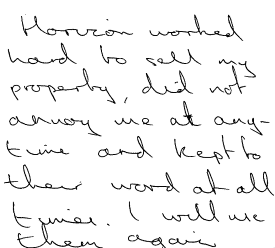 Horizon worked
hard to sell my
property, did not
annoy me at any-
time and kept to
their word at all
times. I will use
them again